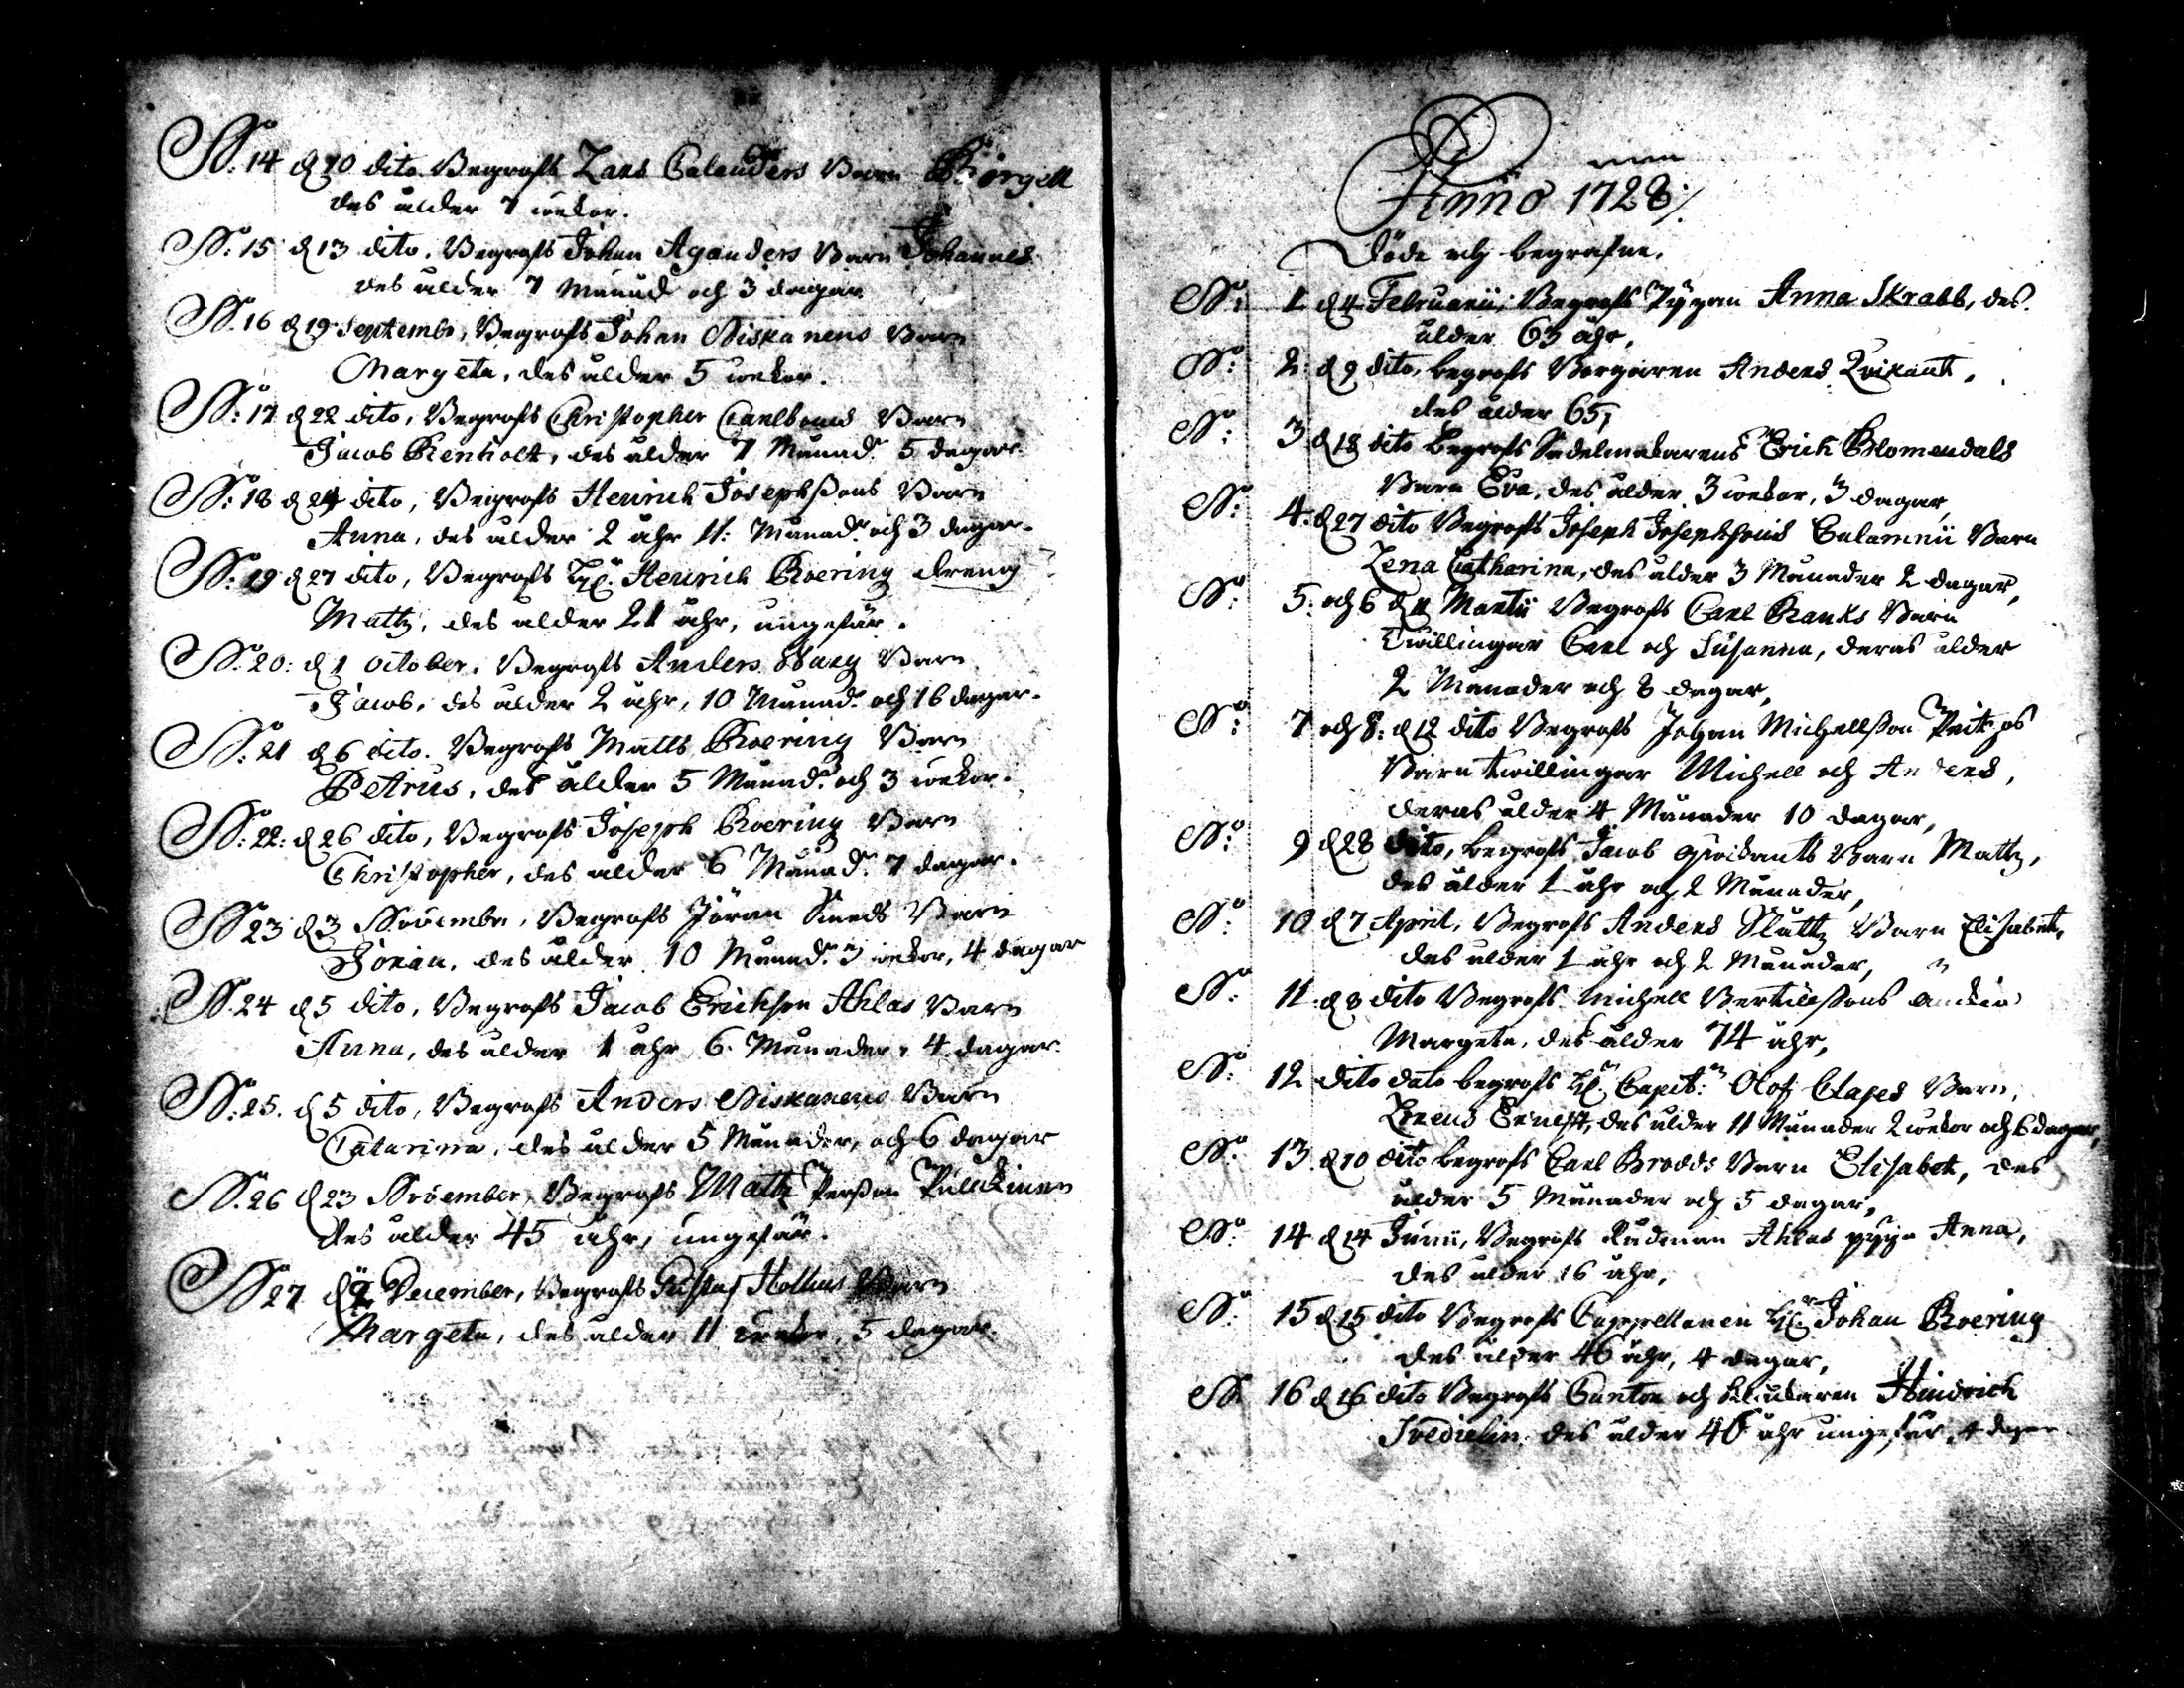 No: 14 d 10 dito. Begrofs Lars Calanders Barn Börgell
des ålder 7 wekor.
No: 15 d 13 dito. Begrofs Johan Aganders Barn Johannes
des ålder 7 Månad och 3 dagar
No. 16 d 19 Septembr, Begrofs Johan Niskanens Barn
Margeta, des ålder 5 wekor.
No: 17 d 22 dito, Begrofs Christopher Barn
Jacob Renholt, des ålder 7 Månad. 5 dagar.
No: 18 d 24 dito, Begrofs Henrich Josephßons Barn
Anna, des ålder 2 åhr 11: Månad. och 3 dagar.
No: 19 d 27 dito, Begrofs Hr. Henrich Roering dreng
Mattz, des ålder 21 åhr, ungefär.
No. 20: d 1 october. Begrofs Anders Barn
Jacob, des ålder 2 åhr, 10 Månad. och 16 dagar.
No. 21 d 6 dito. Begrofs Matts Roering Barn
Petrus, des ålder 5 Månad. och 3 wekor.
No: 22: d 26 dito, Begrofs Joseph Roering Barn
Christopher, des ålder 6 Månad. 7 dagar.
No 23 d 3 November, Begrofs Jöran Smeds Barn
Jöran, des ålder 10 Månad. 3 wekor, 4 dagar
No. 24 d 5 dito, Begrofs Jacob Erichson Ahlas Barn
Anna, des ålder 1 åhr 6. Månader, 4 dagar.
No: 25. d 5 dito, Begrofs Anders Niskanens Barn
Catarina, des ålder 5 Månader, och 6 dagar
No. 26 d 23 November, Begrofs Mattz Perßon Pulckinen
des ålder 45 åhr, ungefär.
No 27 d 2 December, Begrofs Gustaf Barn
Margeta, des ålder 11 wekor, 5 dagar.
Anno 1728
Döde och begrafne.
No: 1 d 4 Februarii, Begrofs Pigan Anna Skrabb, des
ålder 63 åhr,
No: 2: d 9 dito, begrofs Borgaren Anders Qvikant,
des ålder 65,
No: 3 d 18 dito Begrofs Sadelmakarens Erich Blomendals
Barn Eva, des ålder 3 wekor, 3 dagar,
No: 4. d 27 dito Begrofs Joseph Josephsons Calamnii Barn
Lena Catharina, des ålder 3 Månader 2 dagar,
No: 5: och 6 d 11 Martii Begrofs Carl Ranks Barn
Twillingar Carl och Susanna, deras ålder
2 Månader och 8 dagar,
No: 7 och 8: d 12 dito Begrofs Johan Michellßon
Barn twillingar Michell och Anders,
deras ålder 4 Månader 10 dagar,
No: 9 d 28 dito, begrofs Jacob Qwickants Barn Mattz,
des ålder 1 åhr och 2 Månader,
No: 10 d 7 April, Begrofs Anders Sluttz Barn Elisabet,
des ålder 1 åhr och 2 Månader,
No: 11: d 8 dito Begrofs Michell Bertillßons änckia
Margeta, des ålder 74 åhr,
No: 12 dito dato begrofs Hr. Capit: Olof Clases Barn,
Ernest, des ålder 11 Månader 2 wekor och 6 dagar,
No: 13 d 10 dito begrofs Carl Brodds Barn Elisabet, des
ålder 5 Månader och 5 dagar,
No: 14 d 14 Junii, Begrofs Rudman Ahlas piga Anna,
des ålder 16 åhr,
No: 15 d 15 dito Begrofs Cappellanen Hr. Johan Roering
des ålder 46 åhr, 4 dagar,
No 16 d 16 dito Begrofs Cantor och Klockaren Hindrich
des ålder 40 åhr ungefär, 4 dagar